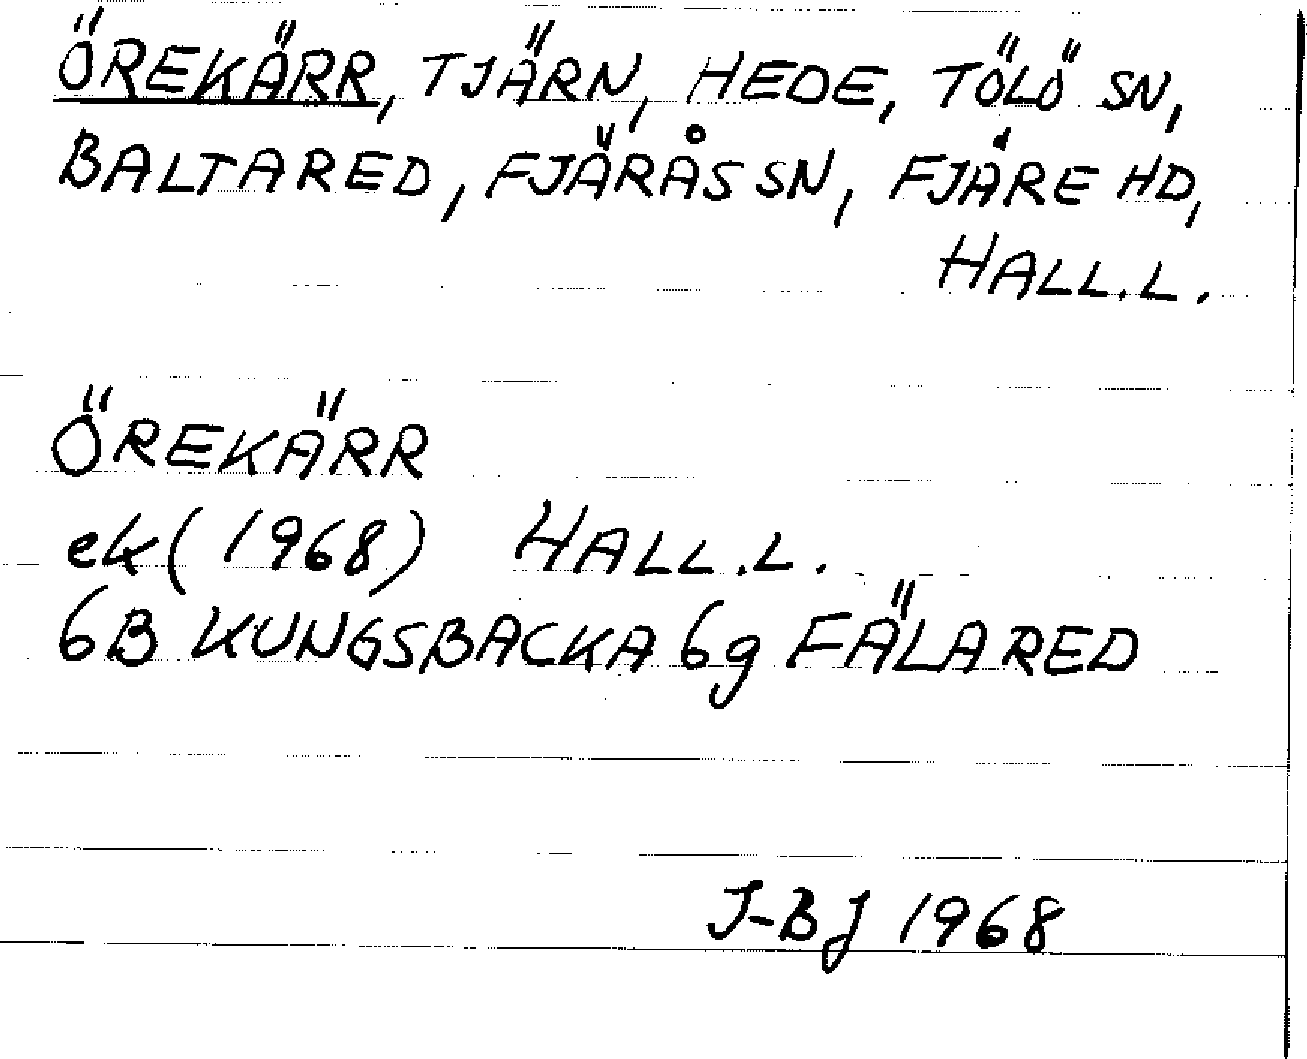 ÖREKÄRR, TJÄRN, HEDE, TÖLÖ SN,
BALTARED, FJÄRÅS SN, FJÄRE HD,
HALL.L.
ÖREKÄRR
ek (1968) HALL.L.
6B KUNGSBACKA 6g FÄLARED
J-BJ 1968